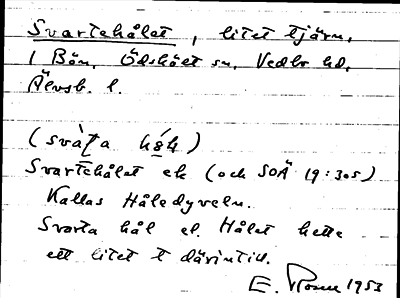 Svartehålet, litet tjärn,
i Bön, Ödskölt sn, Vedbo hd,
Älvsb. l.
(svàṭa hó̤ḷ)
Svartehålet ek (och SOÄ 19:305)
Kallas Håledyveln.
Svarta hål el. Hålet hette
ett litet t därintill.
E. 1953